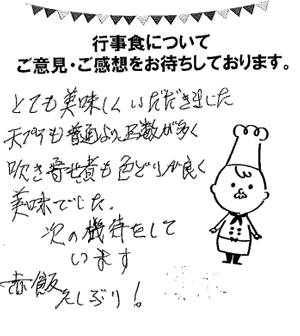 行事食について
ご意見・ご感想をお待ちしております。
とても美味しくいただきました
天プラも普通より品数が多く
吹き寄せ煮も色どりが良く
美味でした。
次の機待をして
います
赤飯
久しぶり!